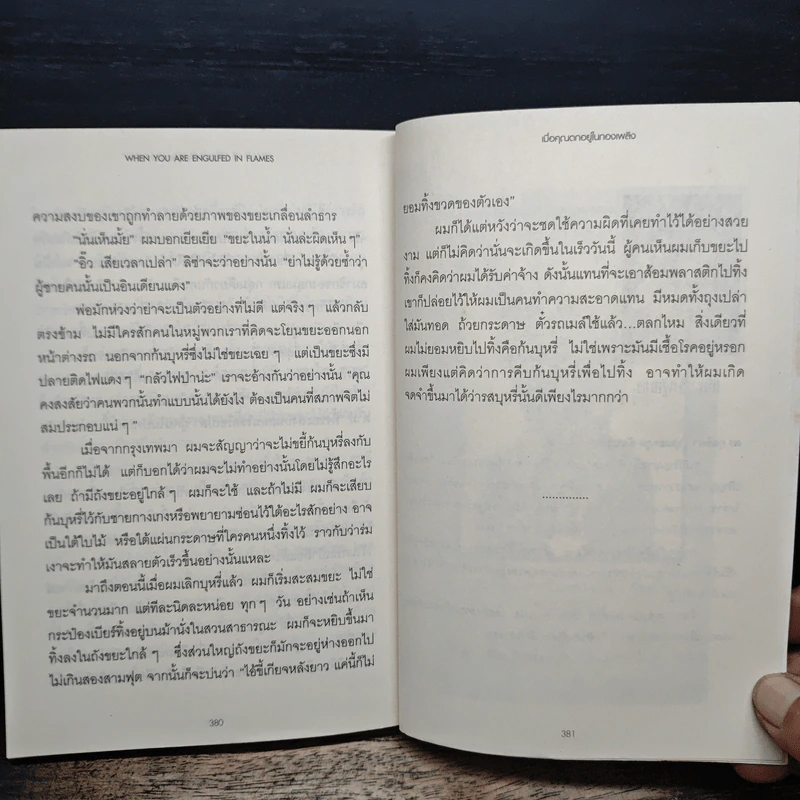 WHEN YOU ARE ENGULFED IN FLAMES
ความสงบของเขาถูกทำลายด้วยภาพของขยะเกลื่อนลำธาร
“นั่นเห็นมั้ย” ผมบอกเยียเยีย “ขยะในน้ำ นั่นล่ะผิดเห็นๆ”
“อิ๊ว เสียเวลาเปล่า” ลิซ่าจะว่าอย่างนั้น “ย่าไม่รู้ด้วยซ้ำว่า
ผู้ชายคนนั้นเป็นอินเดียนแดง”
พ่อมักห่วงว่าย่าจะเป็นตัวอย่างที่ไม่ดี แต่จริงๆ แล้วกลับ
ตรงข้าม ไม่มีใครสักคนในหมู่พวกเราที่คิดจะโยนขยะออกนอก
หน้าต่างรถ นอกจากก้นบุหรี่ซึ่งไม่ใช่ขยะเฉยๆ แต่เป็นขยะซึ่งมี
ปลายติดไฟแดงๆ “กลัวไฟป่าน่ะ” เราจะอ้างกันว่าอย่างนั้น “คุณ
คงสงสัยว่าคนพวกนั้นทำแบบนั้นได้ยังไง ต้องเป็นคนที่สภาพจิตไม่
สมประกอบแน่ๆ”
เมื่อจากกรุงเทพมา ผมจะสัญญาว่าจะไม่ขยี้ก้นบุหรี่ลงกับ
พื้นอีกก็ไม่ได้ แต่ก็บอกได้ว่าผมจะไม่ทำอย่างนั้นโดยไม่รู้สึกอะไร
เลย ถ้ามีถังขยะอยู่ใกล้ๆ ผมก็จะใช้ และถ้าไม่มี ผมก็จะเสียบ
ก้นบุหรี่ไว้กับชายกางเกงหรือพยายามซ่อนไว้ใต้อะไรสักอย่าง อาจ
เป็นใต้ใบไม้ หรือใต้แผ่นกระดาษที่ใครคนหนึ่งทิ้งไว้ ราวกับว่าร่ม
เงาจะทำให้มันสลายตัวเร็วขึ้นอย่างนั้นแหละ
มาถึงตอนนี้เมื่อผมเลิกบุหรี่แล้ว ผมก็เริ่มสะสมขยะ ไม่ใช่
ขยะจำนวนมาก แต่ทีละนิดละหน่อย ทุกๆ วัน อย่างเช่นถ้าเห็น
กระป๋องเบียร์ทิ้งอยู่บนม้านั่งในสวนสาธารณะ ผมก็จะหยิบขึ้นมา
ทิ้งลงในถังขยะใกล้ๆ ซึ่งส่วนใหญ่ถังขยะก็มักจะอยู่ห่างออกไป
ไม่เกินสองสามฟุต จากนั้นก็จะบ่นว่า “ไอ้ขี้เกียจหลังยาว แค่นี้ก็ไม่
380
เมื่อคุณตกอยู่ในกองเพลิง
ยอมทิ้งขวดของตัวเอง”
ผมก็ได้แต่หวังว่าจะชดใช้ความผิดที่เคยทำไว้ได้อย่างสวย
งาม แต่ก็ไม่คิดว่านั่นจะเกิดขึ้นในเร็ววันนี้ ผู้คนเห็นผมเก็บขยะไป
ทิ้งก็คงคิดว่าผมได้รับค่าจ้าง ดังนั้นแทนที่จะเอาส้อมพลาสติกไปทิ้ง
เขาก็ปล่อยไว้ให้ผมเป็นคนทำความสะอาดแทน มีหมดทั้งถุงเปล่า
ใส่มันทอด ถ้วยกระดาษ ตั๋วรถเมล์ใช้แล้ว...ตลกไหม สิ่งเดียวที่
ผมไม่ยอมหยิบไปทิ้งคือก้นบุหรี่ ไม่ใช่เพราะมันมีเชื้อโรคอยู่หรอก
ผมเพียงแต่คิดว่าการคีบก้นบุหรี่เพื่อไปทิ้ง อาจทำให้ผมเกิด
จดจำขึ้นมาได้ว่ารสบุหรี่นั้นดีเพียงไรมากกว่า
..............
381